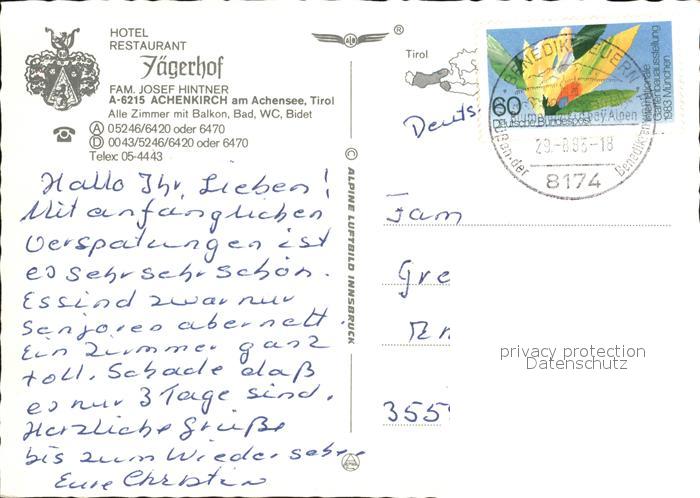 HOTEL
RESTAURANT
Jägerhof
FAM. JOSEF HINTNER
A-6215 ACHENKIRCH am Achensee, Tirol
Alle Zimmer mit Balkon, Bad, WC, Bidet
Ⓐ 05246/6420 oder 6470
Ⓓ 0043/5246/6420 oder 6470
Telex: 05-4443
Hallo Ihr Lieben!
Mit anfänglichen
Verspätungen ist
es sehr sehr schön.
Es sind zwar nur
Senioren aber nett.
Ein Zimmer ganz
toll. Schade daß
es nur 3 Tage sind.
Herzliche Grüße
bis zum Wiedersehen
Eure Christin
© ALPINE LUFTBILD INNSBRUCK
ALB ®
Tirol
60
Deutsche Bundespost
Internationale
Gartenbauausstellung
1983 München
BENEDIKTBEUERN
8174
Deuts
Fam
Gre
355
privacy protection
Datenschutz